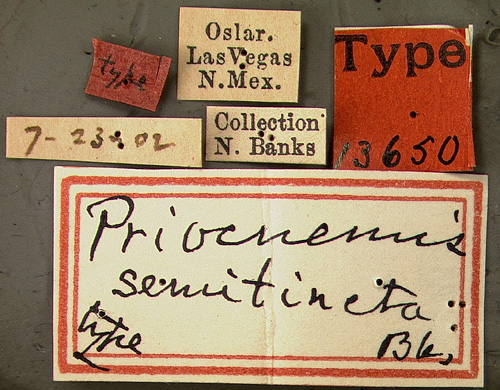 type
Oslar.
Las Vegas
N. Mex.
Type
13650
7-23-02
Collection
N. Banks
Priocnemis
semitincta
type
Bks,